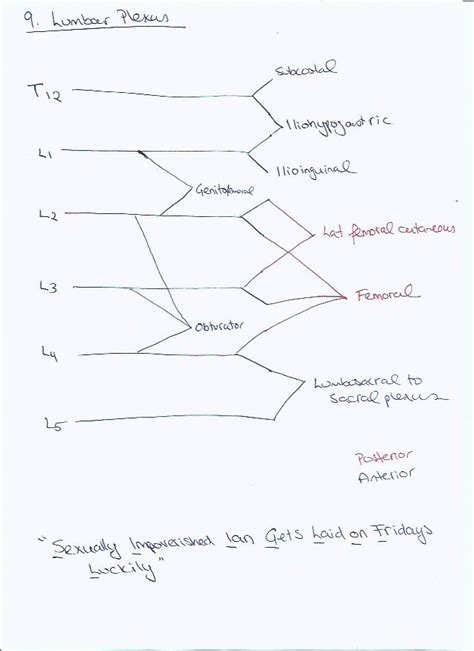 9. Lumbar Plexus
Subcostal
T12
Iliohypogastric
L1
Ilioinguinal
Genitofemoral
L2
Lat femoral cutaneous
L3
Femoral
Obturator
L4
Lumbosacral to
sacral plexus
L5
Posterior
Anterior
"Sexually Impoverished Ian Gets Laid on Fridays
Luckily"